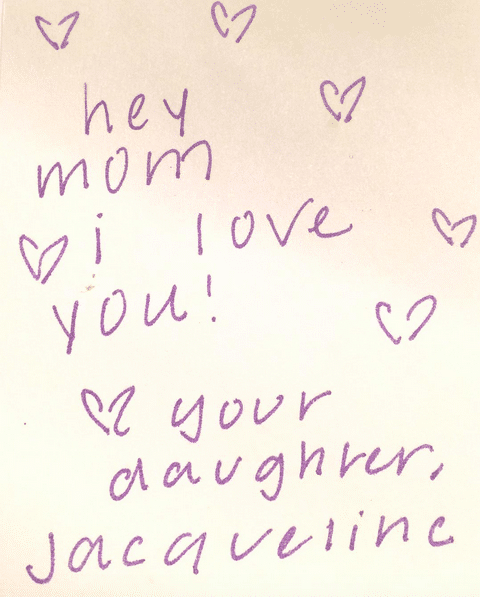 hey
mom
i love
you!
your
daughter,
Jacqueline